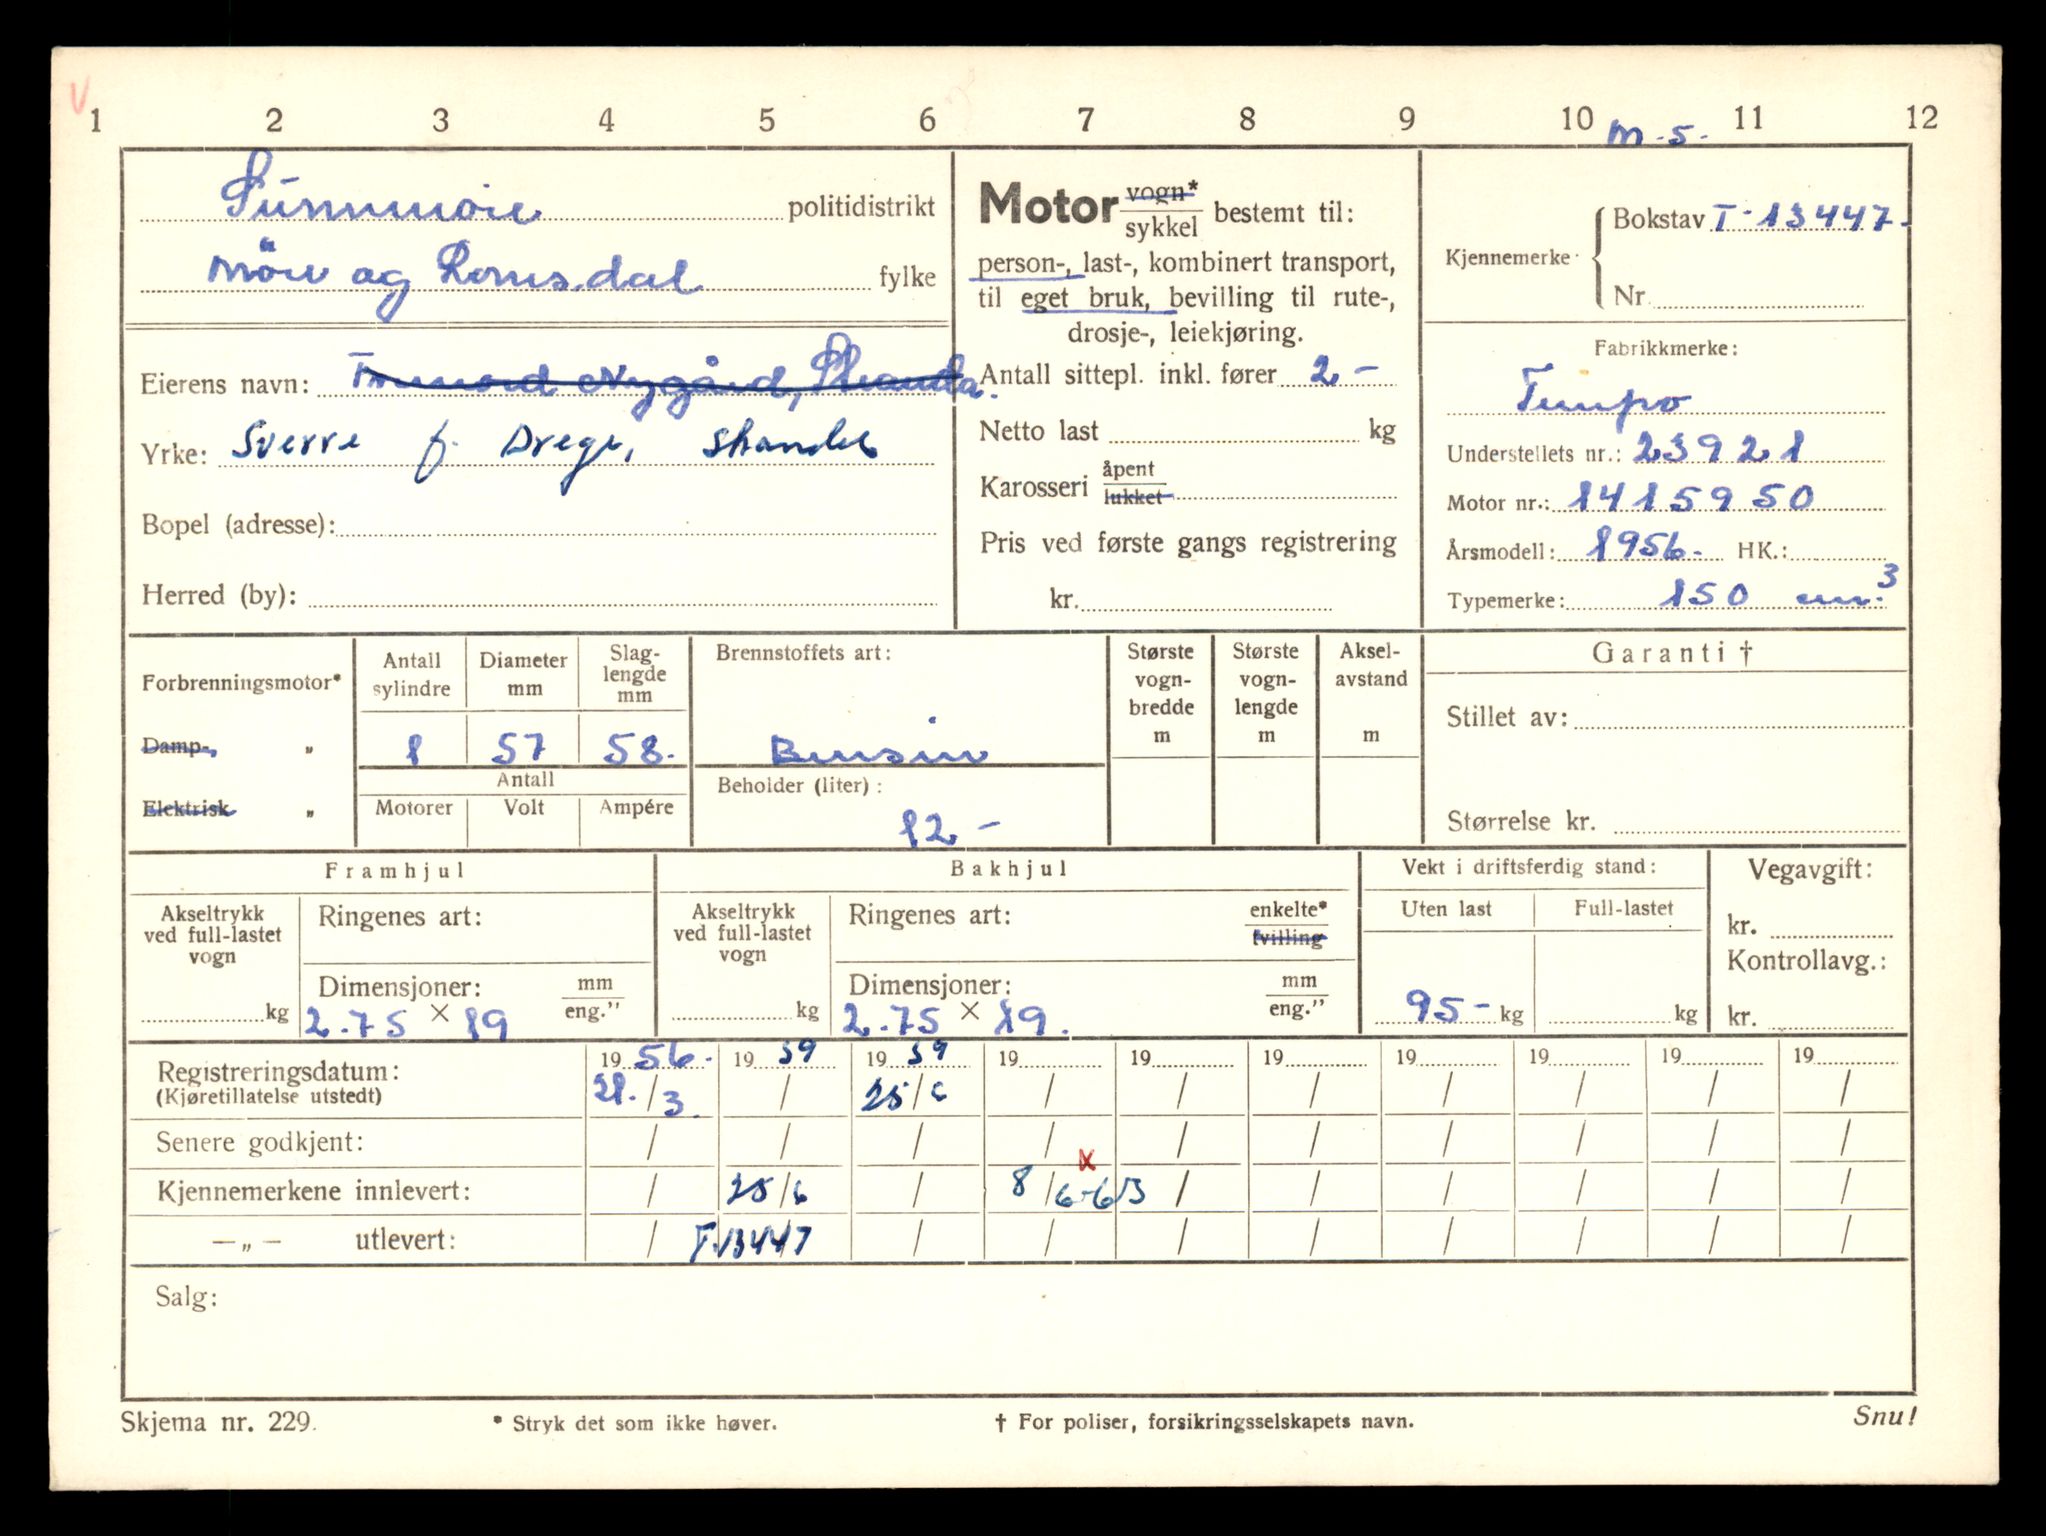 V
1 2 3 4 5 6 7 8 9 10 11 12
m.s.
Sunnmøre politidistrikt
Møre og Romsdal fylke
Eierens navn: Nygård, Stranda.
Yrke: Sverre J. Drege, Stranda
Bopel (adresse):
Herred (by):
Motor vogn* / sykkel bestemt til:
person-, last-, kombinert transport,
til eget bruk, bevilling til rute-,
drosje-, leiekjøring.
Antall sittepl. inkl. fører 2 -
Netto last kg
Karosseri åpent / lukket
Pris ved første gangs registrering
kr.
Kjennemerke Bokstav T-13447-
Nr.
Fabrikkmerke:
Tempo
Understellets nr.: 23921
Motor nr.: 1415950
Årsmodell: 1956. HK.:
Typemerke: 150 cm.3
Forbrenningsmotor*
Damp- „
Elektrisk „
Antall sylindre 1
Diameter mm 57
Slaglengde mm 58.
Antall
Motorer Volt Ampére
Brennstoffets art:
Bensin
Beholder (liter):
12 -
Største vogn-bredde m
Største vogn-lengde m
Aksel-avstand m
Garanti †
Stillet av:
Størrelse kr.
Framhjul
Akseltrykk ved full-lastet vogn kg
Ringenes art:
Dimensjoner: mm / eng.”
2.75 × 19
Bakhjul
Akseltrykk ved full-lastet vogn kg
Ringenes art: enkelte* / tvilling
Dimensjoner: mm / eng.”
2.75 × 19.
Vekt i driftsferdig stand:
Uten last Full-lastet
95 - kg kg
Vegavgift:
kr.
Kontrollavg.:
kr.
19 56. 19 59 19 59 19 19 19 19 19 19 19
Registreringsdatum: 21./3. / 25/6 / / / / / / /
(Kjøretillatelse utstedt)
Senere godkjent: / / / / / / / / / /
x
Kjennemerkene innlevert: / 25/6 / 8/6-63 / / / / / /
— „ — utlevert: / T-13447 / / / / / / / /
Salg:
Skjema nr. 229.
* Stryk det som ikke høver.
† For poliser, forsikringsselskapets navn.
Snu!